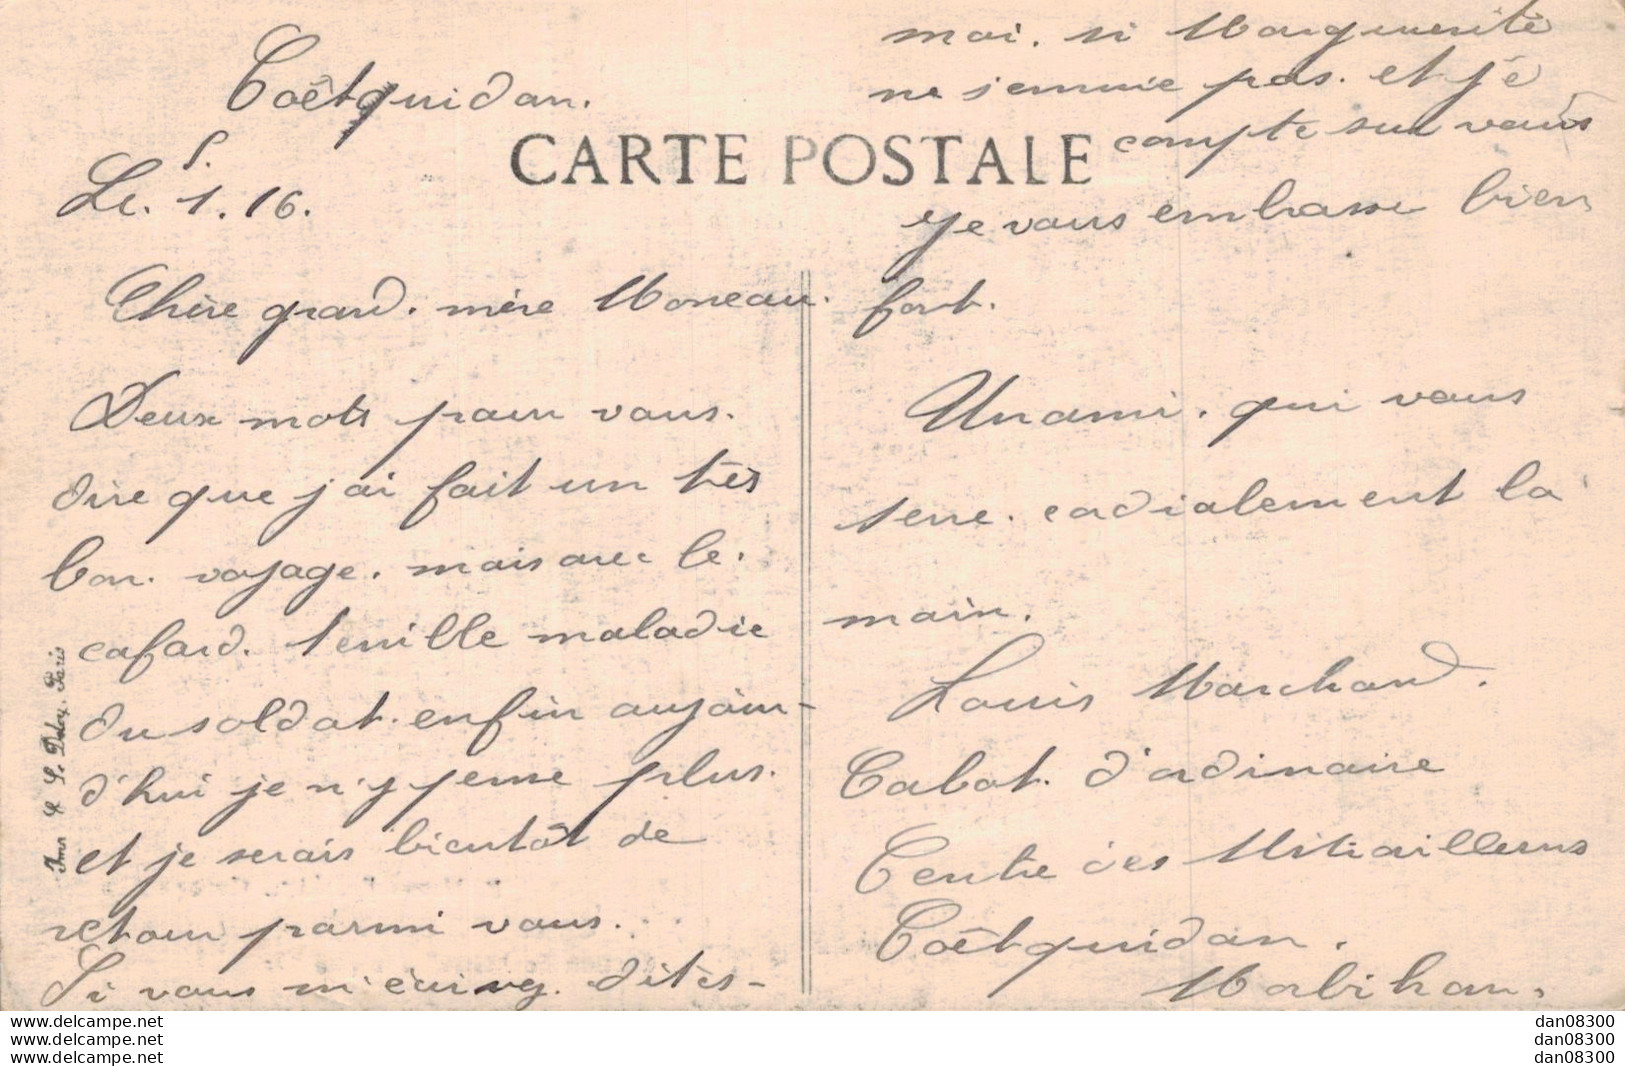 Coëtquidan.
Le. 5. 1. 16.
CARTE POSTALE
Chère grand. mère Moreau.
Deux mots pour vous.
dire que j'ai fait un très
bon. voyage. mais avec le.
cafard. terrible maladie
du soldat. enfin aujour-
d'hui je n'y pense plus.
et je serais bientôt de
retour parmi vous.
Si vous m'écrivez. dites-
moi. si Marguerite
ne s'ennuie pas. et je
compte sur vous
Je vous embrasse bien
fort.
Un ami. qui vous
serre. cordialement la
main.
Louis Marchand.
Cabot. d'ordinaire
Centre des Mitrailleurs
Coëtquidan.
Mobihan.
Imp. E. Deley. Paris
www.delcampe.net
www.delcampe.net
www.delcampe.net
dan08300
dan08300
dan08300